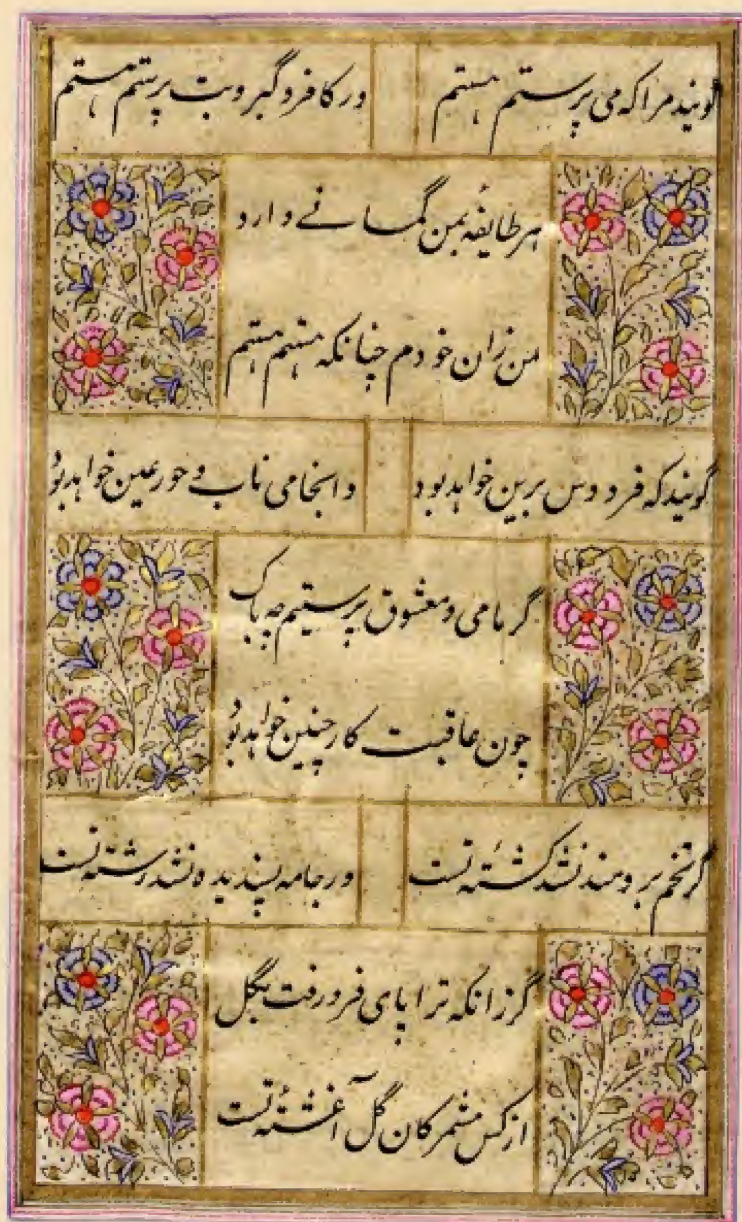 گویند مرا که می پرستم هستم
ور کافر و گبر و بت پرستم هستم
هر طایفهٔ بمن گمانے دارد
من زان خودم چنانکه هستم هستم
گویند که فردوس برین خواهد بود
و انجا می ناب و حور عین خواهد بود
گر ما می و معشوق پرستیم چه باک
چون عاقبت کار چنین خواهد بود
گر تخم برومند نشد کشتهٔ تست
ور جامه پسندیده نشد رشتهٔ تست
گر زانکه ترا پای فرو رفت بگل
از کس مشمر کان گل آغشتهٔ تست